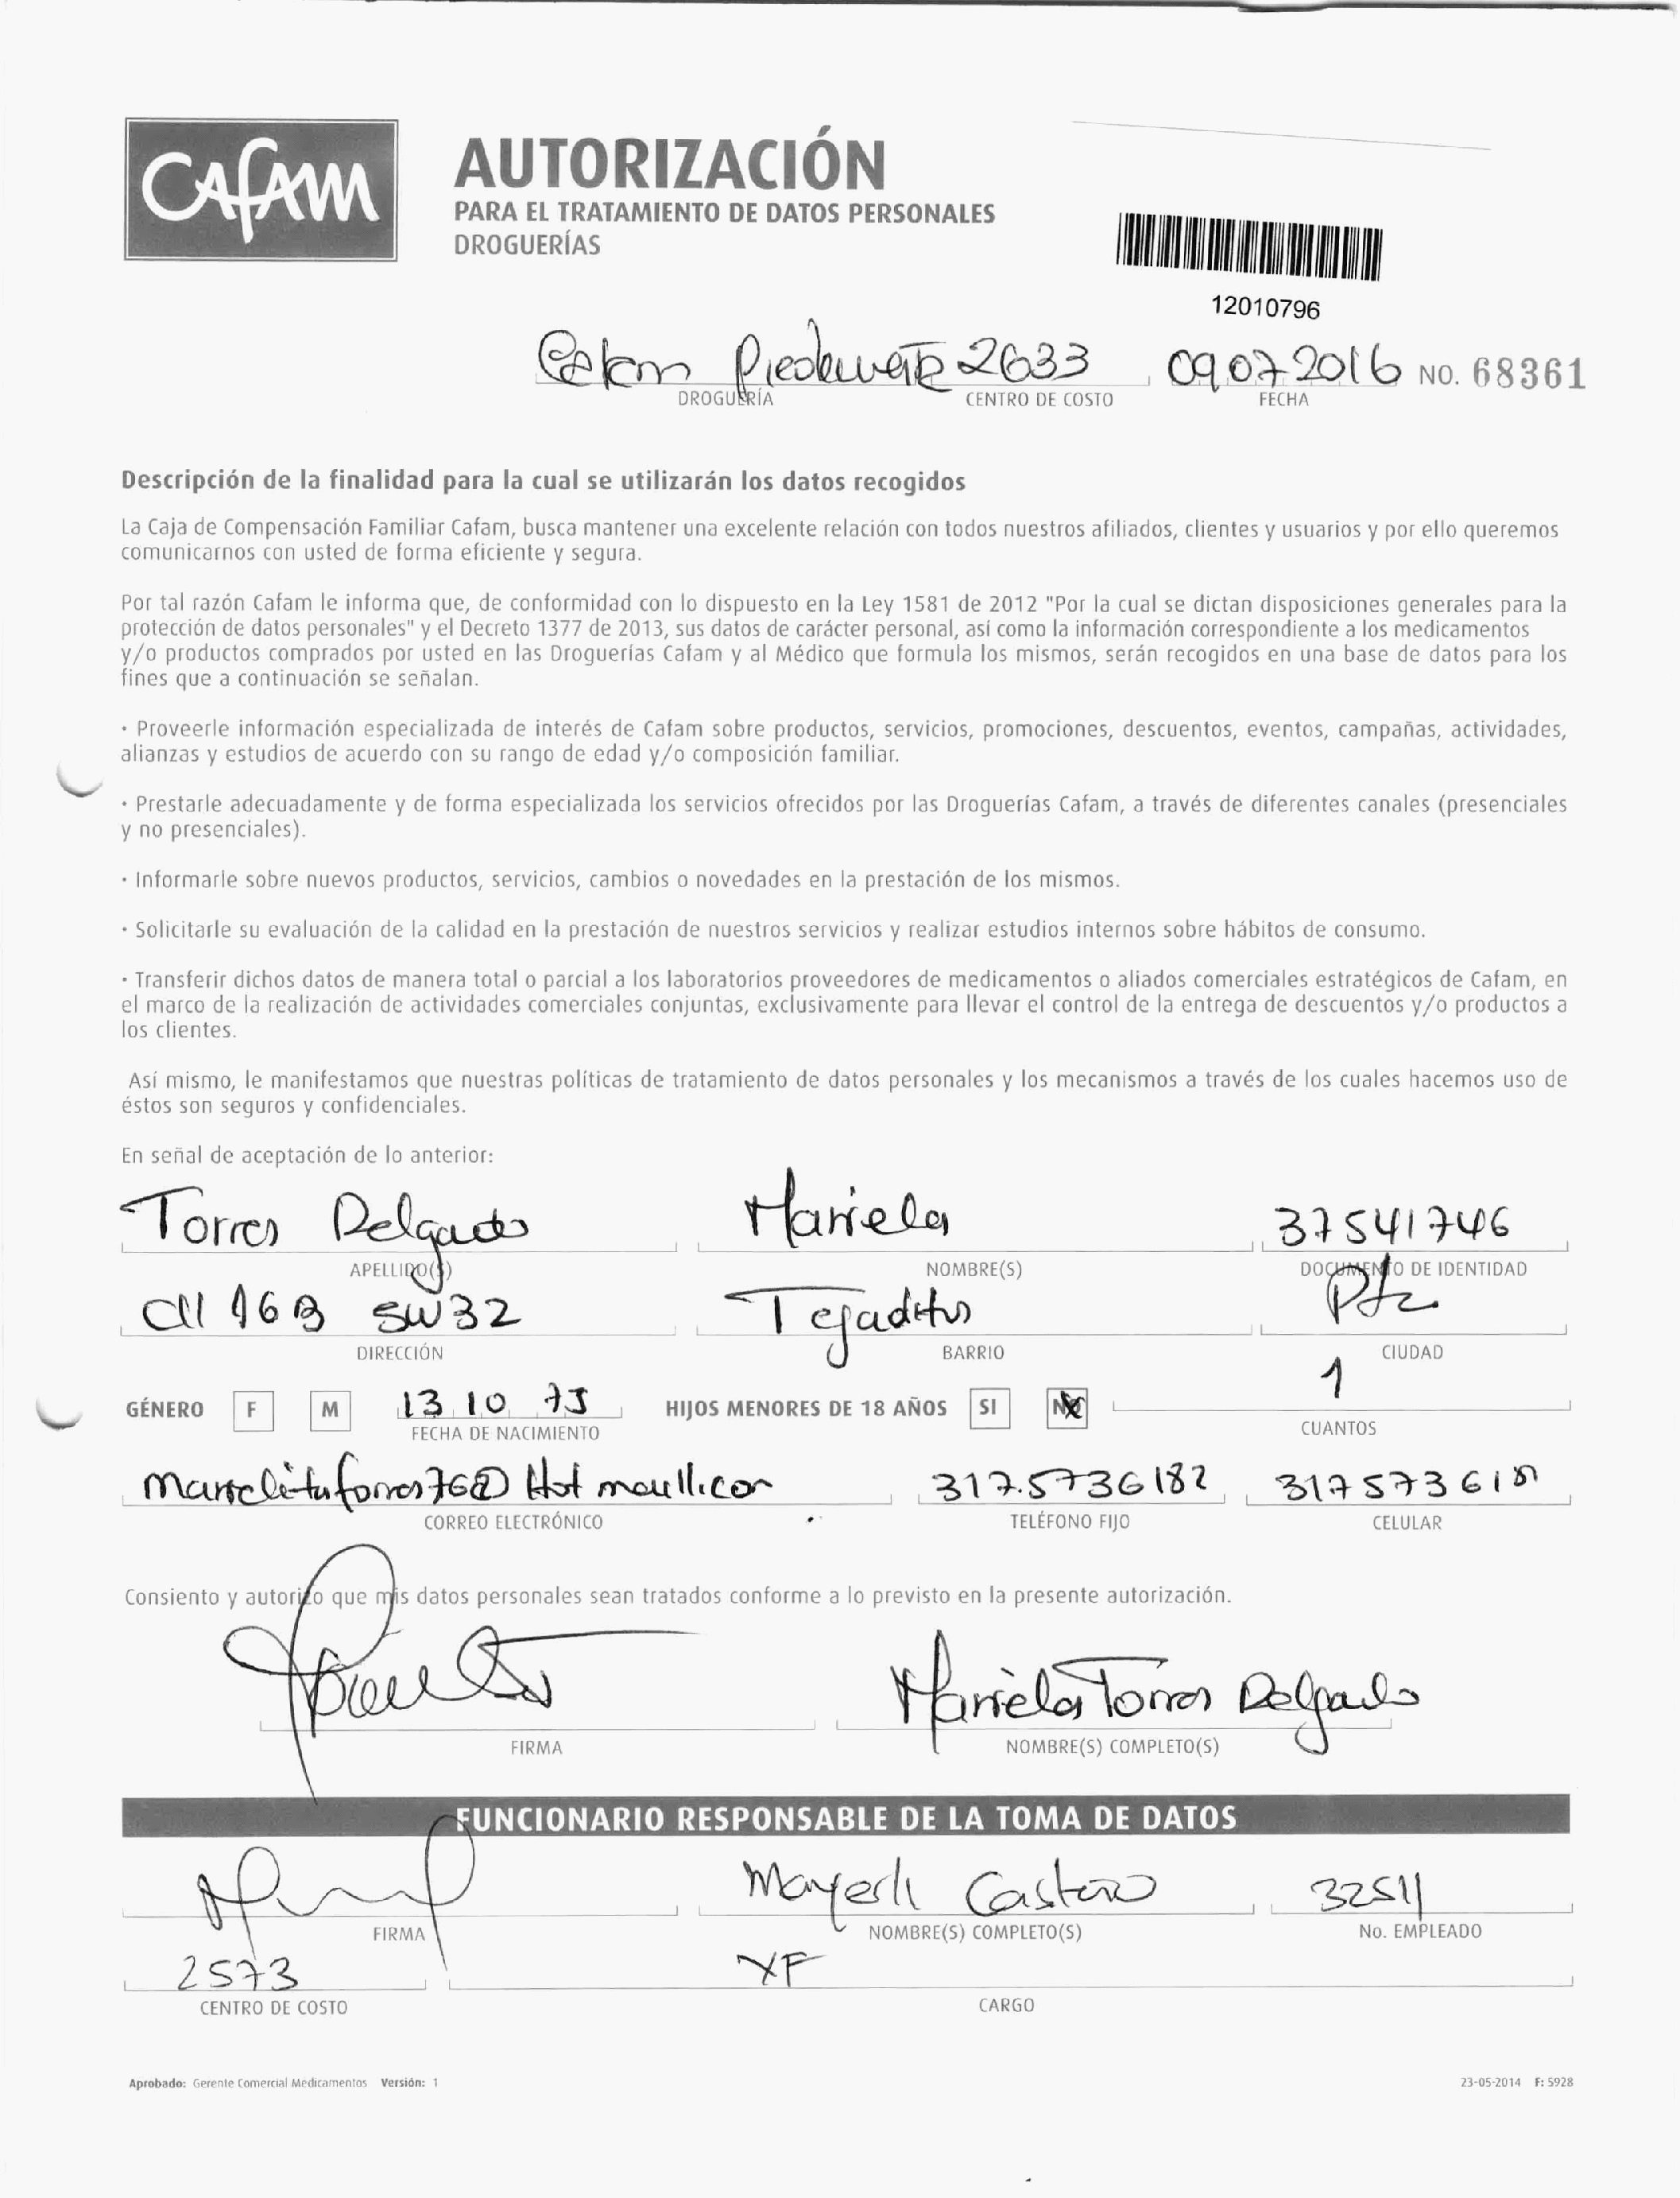 CAFAM
AUTORIZACIÓN
PARA EL TRATAMIENTO DE DATOS PERSONALES
DROGUERÍAS
12010796
2633 09 07 2016 NO. 68361
DROGUERÍA CENTRO DE COSTO FECHA
Descripción de la finalidad para la cual se utilizarán los datos recogidos
La Caja de Compensación Familiar Cafam, busca mantener una excelente relación con todos nuestros afiliados, clientes y usuarios y por ello queremos
comunicarnos con usted de forma eficiente y segura.
Por tal razón Cafam le informa que, de conformidad con lo dispuesto en la Ley 1581 de 2012 "Por la cual se dictan disposiciones generales para la
protección de datos personales" y el Decreto 1377 de 2013, sus datos de carácter personal, así como la información correspondiente a los medicamentos
y/o productos comprados por usted en las Droguerías Cafam y al Médico que formula los mismos, serán recogidos en una base de datos para los
fines que a continuación se señalan.
· Proveerle información especializada de interés de Cafam sobre productos, servicios, promociones, descuentos, eventos, campañas, actividades,
alianzas y estudios de acuerdo con su rango de edad y/o composición familiar.
· Prestarle adecuadamente y de forma especializada los servicios ofrecidos por las Droguerías Cafam, a través de diferentes canales (presenciales
y no presenciales).
· Informarle sobre nuevos productos, servicios, cambios o novedades en la prestación de los mismos.
· Solicitarle su evaluación de la calidad en la prestación de nuestros servicios y realizar estudios internos sobre hábitos de consumo.
· Transferir dichos datos de manera total o parcial a los laboratorios proveedores de medicamentos o aliados comerciales estratégicos de Cafam, en
el marco de la realización de actividades comerciales conjuntas, exclusivamente para llevar el control de la entrega de descuentos y/o productos a
los clientes.
Así mismo, le manifestamos que nuestras políticas de tratamiento de datos personales y los mecanismos a través de los cuales hacemos uso de
éstos son seguros y confidenciales.
En señal de aceptación de lo anterior:
Torres Delgado Mariela 37541746
APELLIDO(S) NOMBRE(S) DOCUMENTO DE IDENTIDAD
Cll 16B 5W32 Tejaditos Pta
DIRECCIÓN BARRIO CIUDAD
GÉNERO F M 13 10 75 HIJOS MENORES DE 18 AÑOS SI NO 1
FECHA DE NACIMIENTO CUANTOS
317.5736182 317573618
CORREO ELECTRÓNICO TELÉFONO FIJO CELULAR
Consiento y autorizo que mis datos personales sean tratados conforme a lo previsto en la presente autorización.
Mariela Torres Delgado
FIRMA NOMBRE(S) COMPLETO(S)
FUNCIONARIO RESPONSABLE DE LA TOMA DE DATOS
Mayerli Castero 32511
FIRMA NOMBRE(S) COMPLETO(S) No. EMPLEADO
2573 XF
CENTRO DE COSTO CARGO
Aprobado: Gerente Comercial Medicamentos Versión: 1 23-05-2014 F: 5928